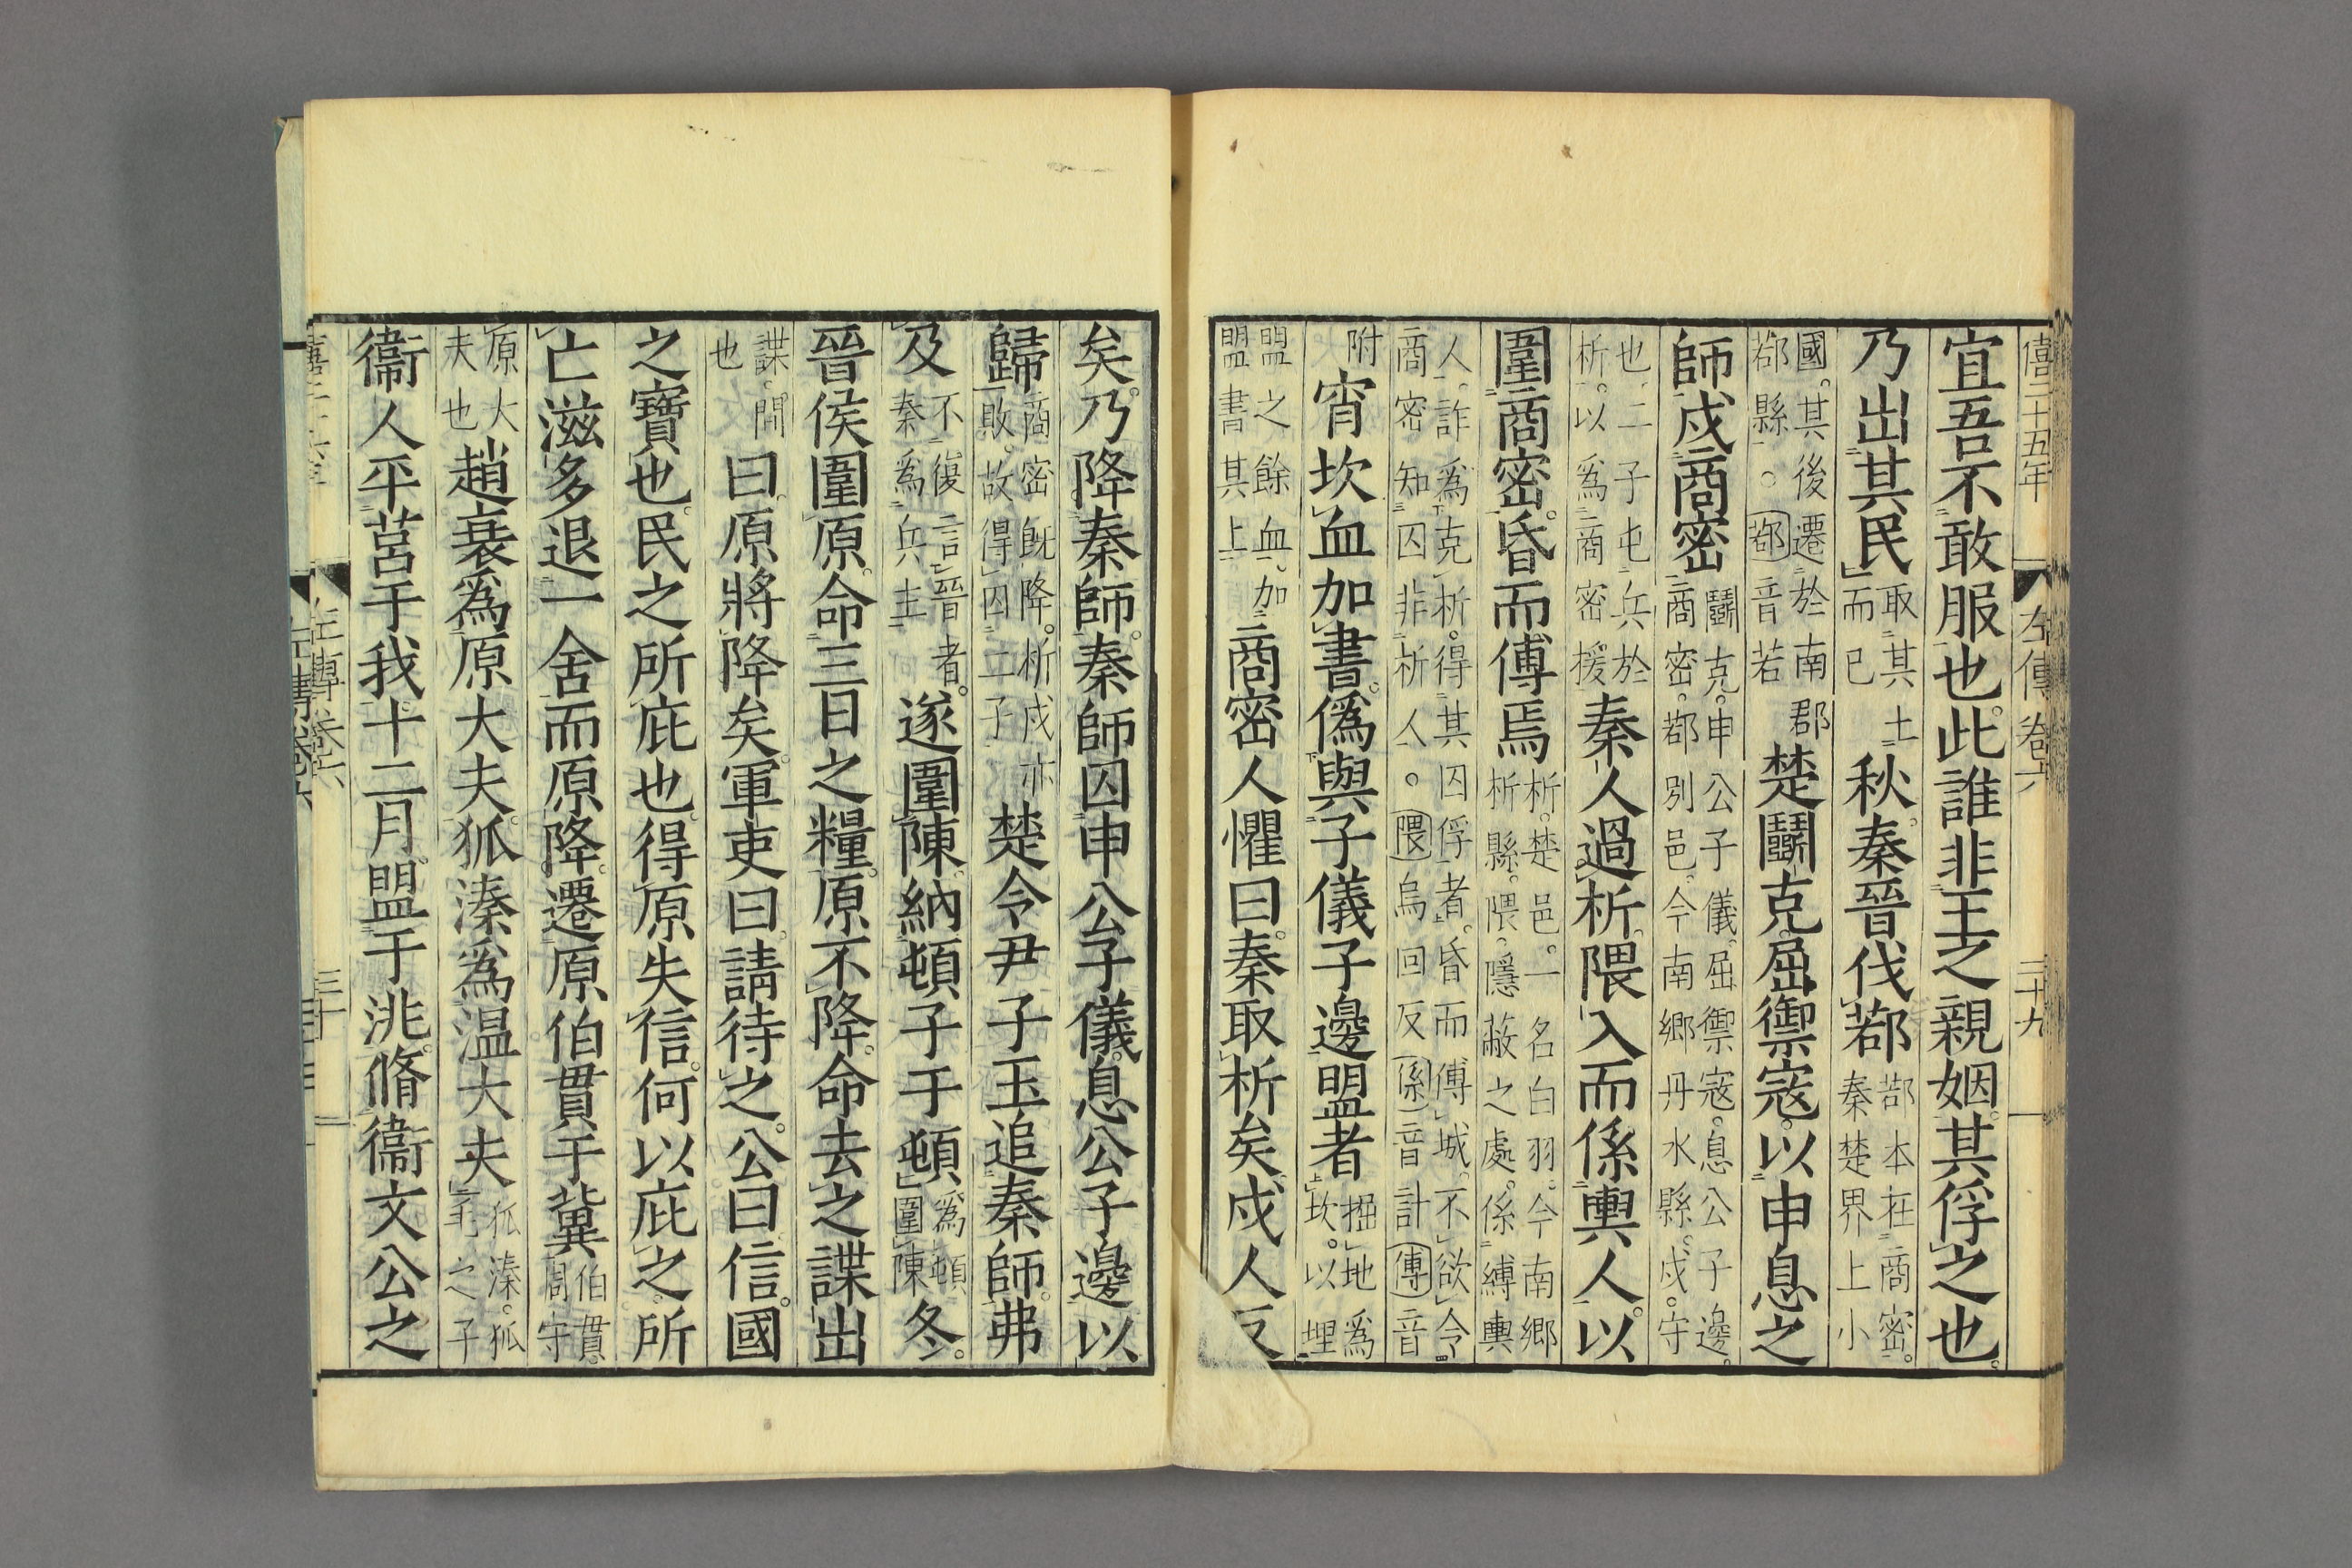 僖二十五年 左傳卷六 二十九
宜吾不敢服也。此誰非王之親姻。其俘之也。
乃出其民取其土而已秋。秦晉伐鄀鄀本在商密。秦楚界上小
國。其後遷於南郡鄀縣。鄀音若楚鬭克。屈禦寇。以申息之
師。戍商密鬭克。申公子儀。屈禦寇。息公子邊。商密。鄀別邑。今南鄉丹水縣。戍。守
也。二子屯兵於析。以爲商密援秦人過析。隈入而係輿人。以
圍商密。昏而傅焉析。楚邑。一名白羽。今南鄉析縣。隈。隱蔽之處。係縛輿
人。詐爲克析。得其囚俘者。昏而傅城。不欲令商密知囚非析人。隈烏回反係音計傅音
附宵坎血加書。僞與子儀子邊盟者掘地爲坎。以埋
盟之餘血。加盟書其上商密人懼曰。秦取析矣。戍人反
矣。乃降秦師。秦師囚申公子儀。息公子邊以
歸商密既降。析戍亦敗。故得囚二子楚令尹子玉追秦師。弗
及不復言晉者。秦爲兵主遂圍陳。納頓子于頓爲頓圍陳冬。
晉侯圍原。命三日之糧。原不降。命去之。諜出
諜。間也曰。原將降矣。軍吏曰。請待之。公曰信。國
之寶也。民之所庇也。得原失信。何以庇之。所
亡滋多。退一舍而原降。遷原伯貫于冀伯貫。周守
原大夫也趙衰爲原大夫。狐溱爲溫大夫狐溱。狐毛之子
衞人平莒于我。十二月。盟于洮。脩衞文公之
左傳卷六 三十